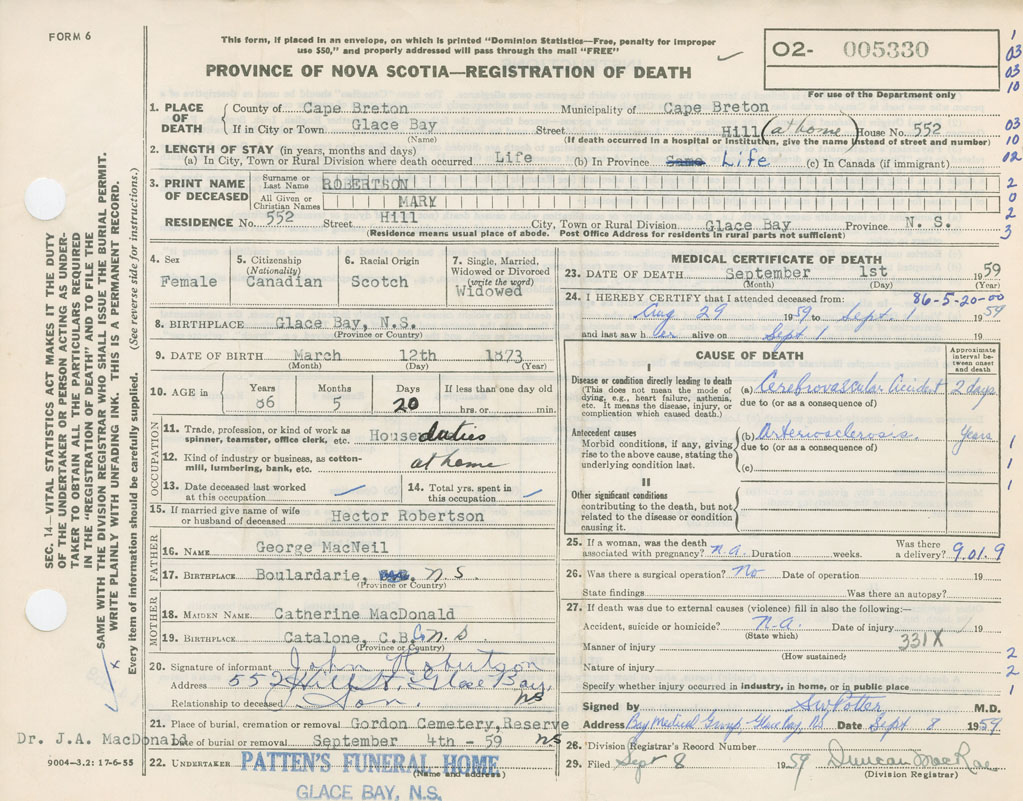 FORM 6
This form, if placed in an envelope, on which is printed "Dominion Statistics—Free, penalty for improper
use $50," and properly addressed will pass through the mail "FREE"
02- 005330
For use of the Department only
PROVINCE OF NOVA SCOTIA—REGISTRATION OF DEATH
1. PLACE OF DEATH
County of Cape Breton Municipality of Cape Breton
If in City or Town Glace Bay Street Hill (at home) House No. 552
(Name) (If death occurred in a hospital or institution, give the name instead of street and number)
2. LENGTH OF STAY (in years, months and days)
(a) In City, Town or Rural Division where death occurred Life (b) In Province Life (c) In Canada (if immigrant)
3. PRINT NAME OF DECEASED
Surname or Last Name ROBERTSON
All Given or Christian Names MARY
RESIDENCE No. 552 Street Hill City, Town or Rural Division Glace Bay Province N. S.
(Residence means usual place of abode. Post Office Address for residents in rural parts not sufficient)
4. Sex
Female
5. Citizenship
(Nationality)
Canadian
6. Racial Origin
Scotch
7. Single, Married,
Widowed or Divorced
(write the word)
Widowed
8. BIRTHPLACE Glace Bay, N.S.
(Province or Country)
9. DATE OF BIRTH March 12th 1873
(Month) (Day) (Year)
10. AGE in
Years Months Days If less than one day old
86 5 20 hrs. or min.
OCCUPATION
11. Trade, profession, or kind of work as
spinner, teamster, office clerk, etc. House duties
12. Kind of industry or business, as cotton-
mill, lumbering, bank, etc. at home
13. Date deceased last worked
at this occupation
14. Total yrs. spent in
this occupation
15. If married give name of wife
or husband of deceased Hector Robertson
FATHER
16. NAME George MacNeil
17. BIRTHPLACE Boulardarie, N.S.
(Province or Country)
MOTHER
18. MAIDEN NAME Catherine MacDonald
19. BIRTHPLACE Catalone, C.B. N.S.
(Province or Country)
20. Signature of informant John Robertson
Address 552 Hill St. Glace Bay, NS
Relationship to deceased Son.
21. Place of burial, cremation or removal Gordon Cemetery, Reserve NS
Dr. J.A. MacDonald
Date of burial or removal September 4th - 59
22. UNDERTAKER PATTEN'S FUNERAL HOME
(Name and address)
GLACE BAY, N.S.
9004—3.2: 17-6-55
MEDICAL CERTIFICATE OF DEATH
23. DATE OF DEATH September 1st 1959
(Month) (Day) (Year)
24. I HEREBY CERTIFY that I attended deceased from: 86-5-20-00
Aug 29 1959 to Sept. 1 1959
and last saw her alive on Sept 1 19
CAUSE OF DEATH
Approximate
interval be-
tween onset
and death
I
Disease or condition directly leading to death
(This does not mean the mode of
dying, e.g., heart failure, asthenia,
etc. It means the disease, injury, or
complication which caused death.)
(a) Cerebrovascular Accident 2 days
due to (or as a consequence of)
Antecedent causes
Morbid conditions, if any, giving
rise to the above cause, stating the
underlying condition last.
(b) Arteriosclerosis. Years
due to (or as a consequence of)
(c)
II
Other significant conditions
contributing to the death, but not
related to the disease or condition
causing it.
25. If a woman, was the death
associated with pregnancy? n.a. Duration weeks. Was there
a delivery? 9.01.9
26. Was there a surgical operation? No Date of operation 19
State findings Was there an autopsy?
27. If death was due to external causes (violence) fill in also the following:—
Accident, suicide or homicide? n.a. Date of injury 19
(State which)
Manner of injury 331X
(How sustained)
Nature of injury
Specify whether injury occurred in industry, in home, or in public place
Signed by SW Potter M.D.
Address Bay Medical Group, Glace Bay, NS Date Sept 8 1959
28. Division Registrar's Record Number
29. Filed Sept 8 1959 Duncan MacRae
(Division Registrar)
SEC. 14—VITAL STATISTICS ACT MAKES IT THE DUTY
OF THE UNDERTAKER OR PERSON ACTING AS UNDER-
TAKER TO OBTAIN ALL THE PARTICULARS REQUIRED
IN THE "REGISTRATION OF DEATH" AND TO FILE THE
SAME WITH THE DIVISION REGISTRAR WHO SHALL ISSUE THE BURIAL PERMIT.
WRITE PLAINLY WITH UNFADING INK. THIS IS A PERMANENT RECORD.
Every item of information should be carefully supplied. (See reverse side for instructions.)
1
03
03
10
03
10
02
2
0
2
3
1
1
1
2
2
1